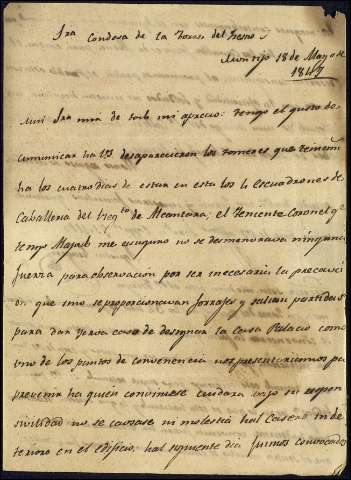 Sra Condesa de la Torre del Fresno
Montijo 18 de Mayo de
1847
Mui Sra mia de todo mi aprecio: tengo el gusto de
comunicar ha VS desaparecieron los temores que tenia
ha los cuatro dias de estar en esta los 4 Escuadrones de
Caballeria del Regto de Alcantara, el Teniente Coronel qe
me aseguro no se desmenorava ninguna
fuerza para observacion por ser necesaria la precaucion
en que sino se proporcionavan forrages y salian partidas
para dar yerva caso de designar la Casa Palacio como
uno de los puntos de convenencia nos presentariamos pa
prevenir ha quien combiniese cuidara bajo su
sivilidad no se causase ni molestia hal Casero ni de
terioro en el edificio: hal siguiente dia fuimos convocados